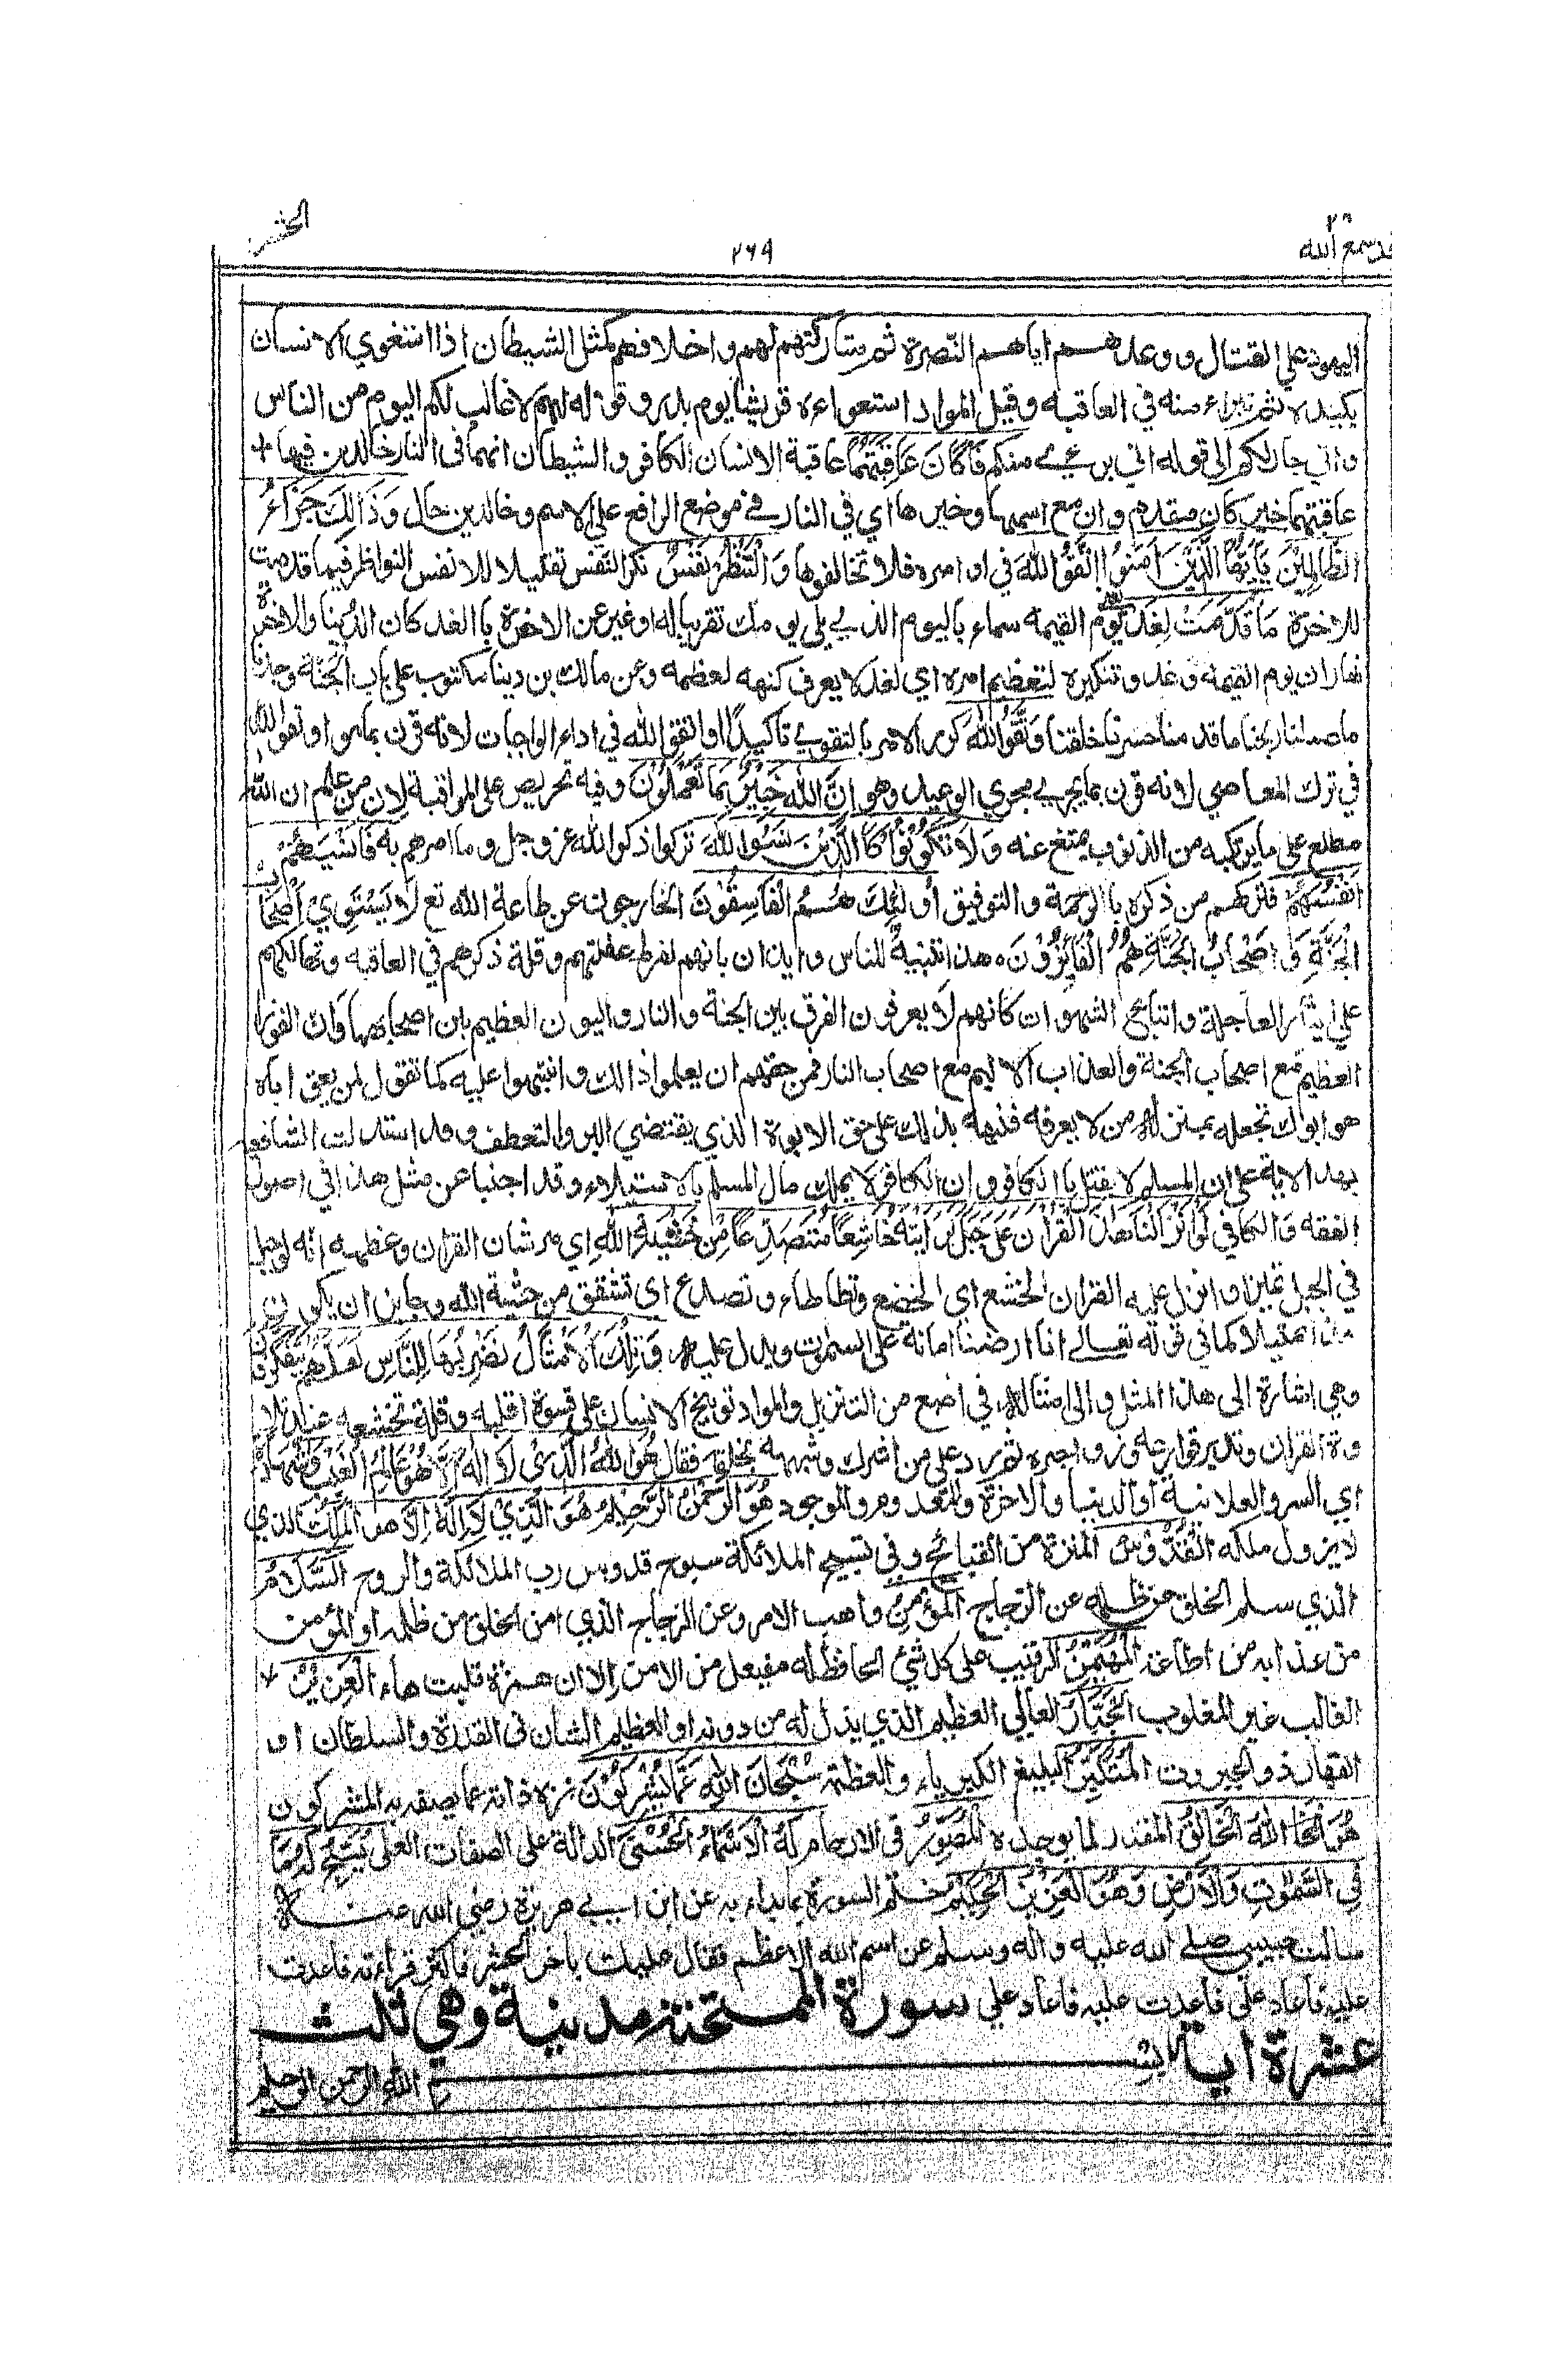 الحشر
٢٦٩
٢٨
قد سمع الله
اليهود علي القتال ووعدهم اياهم النصرة ثم متاركتهم لهم واخلافهم كمثل الشيطان اذا استغوي الانسان
بكيده ثم تبراء منه في العاقبه وقيل المراد استغواءه قريشا يوم بدر وقوله لهم لا غالب لكم اليوم من الناس
واني جار لكم الي قوله اني برئ منكم فَكَانَ عَاقِبَتَهُمَا عاقبة الانسان الكافر والشيطان انهما في النار خالدين فيها
عاقبتهما خبر كان مقدم وان مع اسمها وخبرها اي في النار في موضع الرافع علي الاسم وخالدين حال وَذَالِكَ جَزَاءُ
الظَّالِمِيْنَ يَاَيُّهَا الَّذِيْنَ اٰمَنُوا اتَّقُوا اللهَ في اوامره فلا تخالفوها وَالْتَنْظُرْ نَفْسٌ نكر النفس تقليلا للانفس النواظر فيما قدمت
للاخرة مَا قَدَّمَتْ لِغَدٍ يوم القيمه سماء باليوم الذي يلي يومك تقريبا له او عبر عن الاخرة با الغد كان الدنيا والاخرة
نهاران يوم القيمه وغد وتنكيره لتعظيم امره اي لغد لا يعرف كنهه لعظمه وعن مالك بن دينار مكتوب علي باب الجنة وجدنا
ما عملنا ربحنا ما قدمنا خسرنا ما خلقنا وَاتَّقُوا اللهَ كرر الامر با لتقوي تاكيدًا او اتقو الله في اداء الواجبات لانه قرن بما هو او تقوا الله
في ترك المعاصي لانه قرن بما يجري مجري الوعيد وهو اِنَّ اللهَ خَبِيْرٌ بِمَا تَعْمَلُوْنَ وفيه تحريص علي المراقبة لان من علم ان الله
مطلع علي ما يرتكبه من الذنوب يمتنع عنه وَلَا تَكُوْنُوْا كَاالَّذِيْنَ نَسُوا اللهَ تركوا ذكر الله عز وجل وما امرهم به فَاَنْسٰهُمْ
اَنْفُسَهُمْ فتركهم من ذكره با الرحمة والتوفيق اُولٰئِكَ هُمُ الْفَاسِقُوْنَ الخارجون عن طاعة الله تع لَا يَسْتَوِيْ اَصْحَا
الْجَنَّةِ اَصْحَابُ الْجَنَّةِ هُمُ الْفَائِزُوْنَ هذا تنبيه للناس وايذان بانهم لفرط غفلتهم وقلة ذكرهم في العاقبه وتهالكهم
علي ايثار العاجلة واتباع الشهوات كانهم لا يعرفون الفرق بين الجنة والنار والبون العظيم بين اصحابهما وان الفوز
العظيم مع اصحاب الجنة والعذاب الاليم مع اصحاب النار فمن حقهم ان يعلموا ذالك وانتبهوا عليه كما تقول لمن يعق اباه
هو ابوك تجعله بمنزلة من لا يعرفه فنبهه بذلك علي حق الابوة الذي يقتضي البر والتعطف وقد استدلت الشافعيه
بهذ الاية علي ان المسلم لا يقتل با الكافر وان الكافر لا يملك مال المسلم بالاستيلاء وقد اجبنا عن مثل هذا في اصول
الفقه والكافي لَوْ اَنْزَلْنَا هٰذَا الْقُرْاٰنَ عَلٰى جَبَلٍ لَرَاَيْتَهٗ خَاشِعًا مُتَصَدِّعًا مِنْ خَشْيَةِ اللهِ اي من شان القران وعظمه انه لو جعل
في الجبل تميز وانزل عليه القران لخشع اي لخضع وتطاطاء وتصدع اي تشقق من خشية الله وجايز ان يكون
هذا تمثيلا كما في قوله تعالي انا ارضنا امانة علي السموت ويدل عليه وَتِلْكَ الْاَمْثَالُ نَضْرِبُهَا لِلنَّاسِ لَعَلَّهُمْ يَتَفَكَّرُوْنَ
وهي اشارة الي هذا المثل والي امثاله في مواضع من التنزيل والمراد توبيخ الانسان علي قسوة قلبه وقلة تخشعه عند تلا
وة القران وتدبر قوارعه وزواجره ثم رد علي من اشرك وشبهه بخلقه فقال هُوَ اللهُ الَّذِيْ لَا اِلٰهَ اِلَّا هُوَ عَالِمُ الْغَيْبِ وَالشَّهَادَةِ
اي السر والعلانية او الدنيا والاخرة والمعدوم والموجود هُوَ الرَّحْمٰنُ الرَّحِيْمُ هُوَ الَّذِيْ لَا اِلٰهَ اِلَّا هُوَ الْمَلِكُ الذي
لا يزول ملكه الْقُدُّوْسُ المنزه من القبائح وفي تسبيح الملائكة سبوح قدوس رب الملائكة والروح السَّلَامُ
الذي سلم الخلق من ظلمه عن الزجاج الْمُؤْمِنُ واهب الامن وعن الزجاج الذي امن الخلق من ظلمه او المؤمن
من عذابه من اطاعه الْمُهَيْمِنُ الرقيب علي كل شئ الحافظ له مفيعل من الامن الا ان همزة قلبت هاء الْعَزِيْزُ
الغالب غير المغلوب الْجَبَّارُ العالي العظيم الذي يذل له من دونه او العظيم الشان في القدرة والسلطان او
القهار ذو الجبروت الْمُتَكَبِّرُ البليغ الكبرياء والعظمة سُبْحَانَ اللهِ عَمَّا يُشْرِكُوْنَ نزه ذاته عما يصفه به المشركون
هُوَ اللهُ الْخَالِقُ المقدر لما يوجده الْمُصَوِّرُ في الارحام لَهُ الْاَسْمَاءُ الْحُسْنٰى الدالة علي الصفات العلي يُسَبِّحُ لَهٗ مَا
فِي السَّمٰوٰتِ وَالْاَرْضِ وَهُوَ الْعَزِيْزُ الْحَكِيْمُ ختم السورة بما بداء به عن ابن ابي هريرة رضي الله عنه
سالت حبيبي صلي الله عليه واله وسلم عن اسم الله الاعظم فقال عليك باخر الحشر فاكثر قراءته فاعدت
عليه فاعاد علي فاعدت عليه فاعاد علي سورة الممتحنة مدنية وهي ثلث
عشرة اية بسم الله الرحمن الرحيم